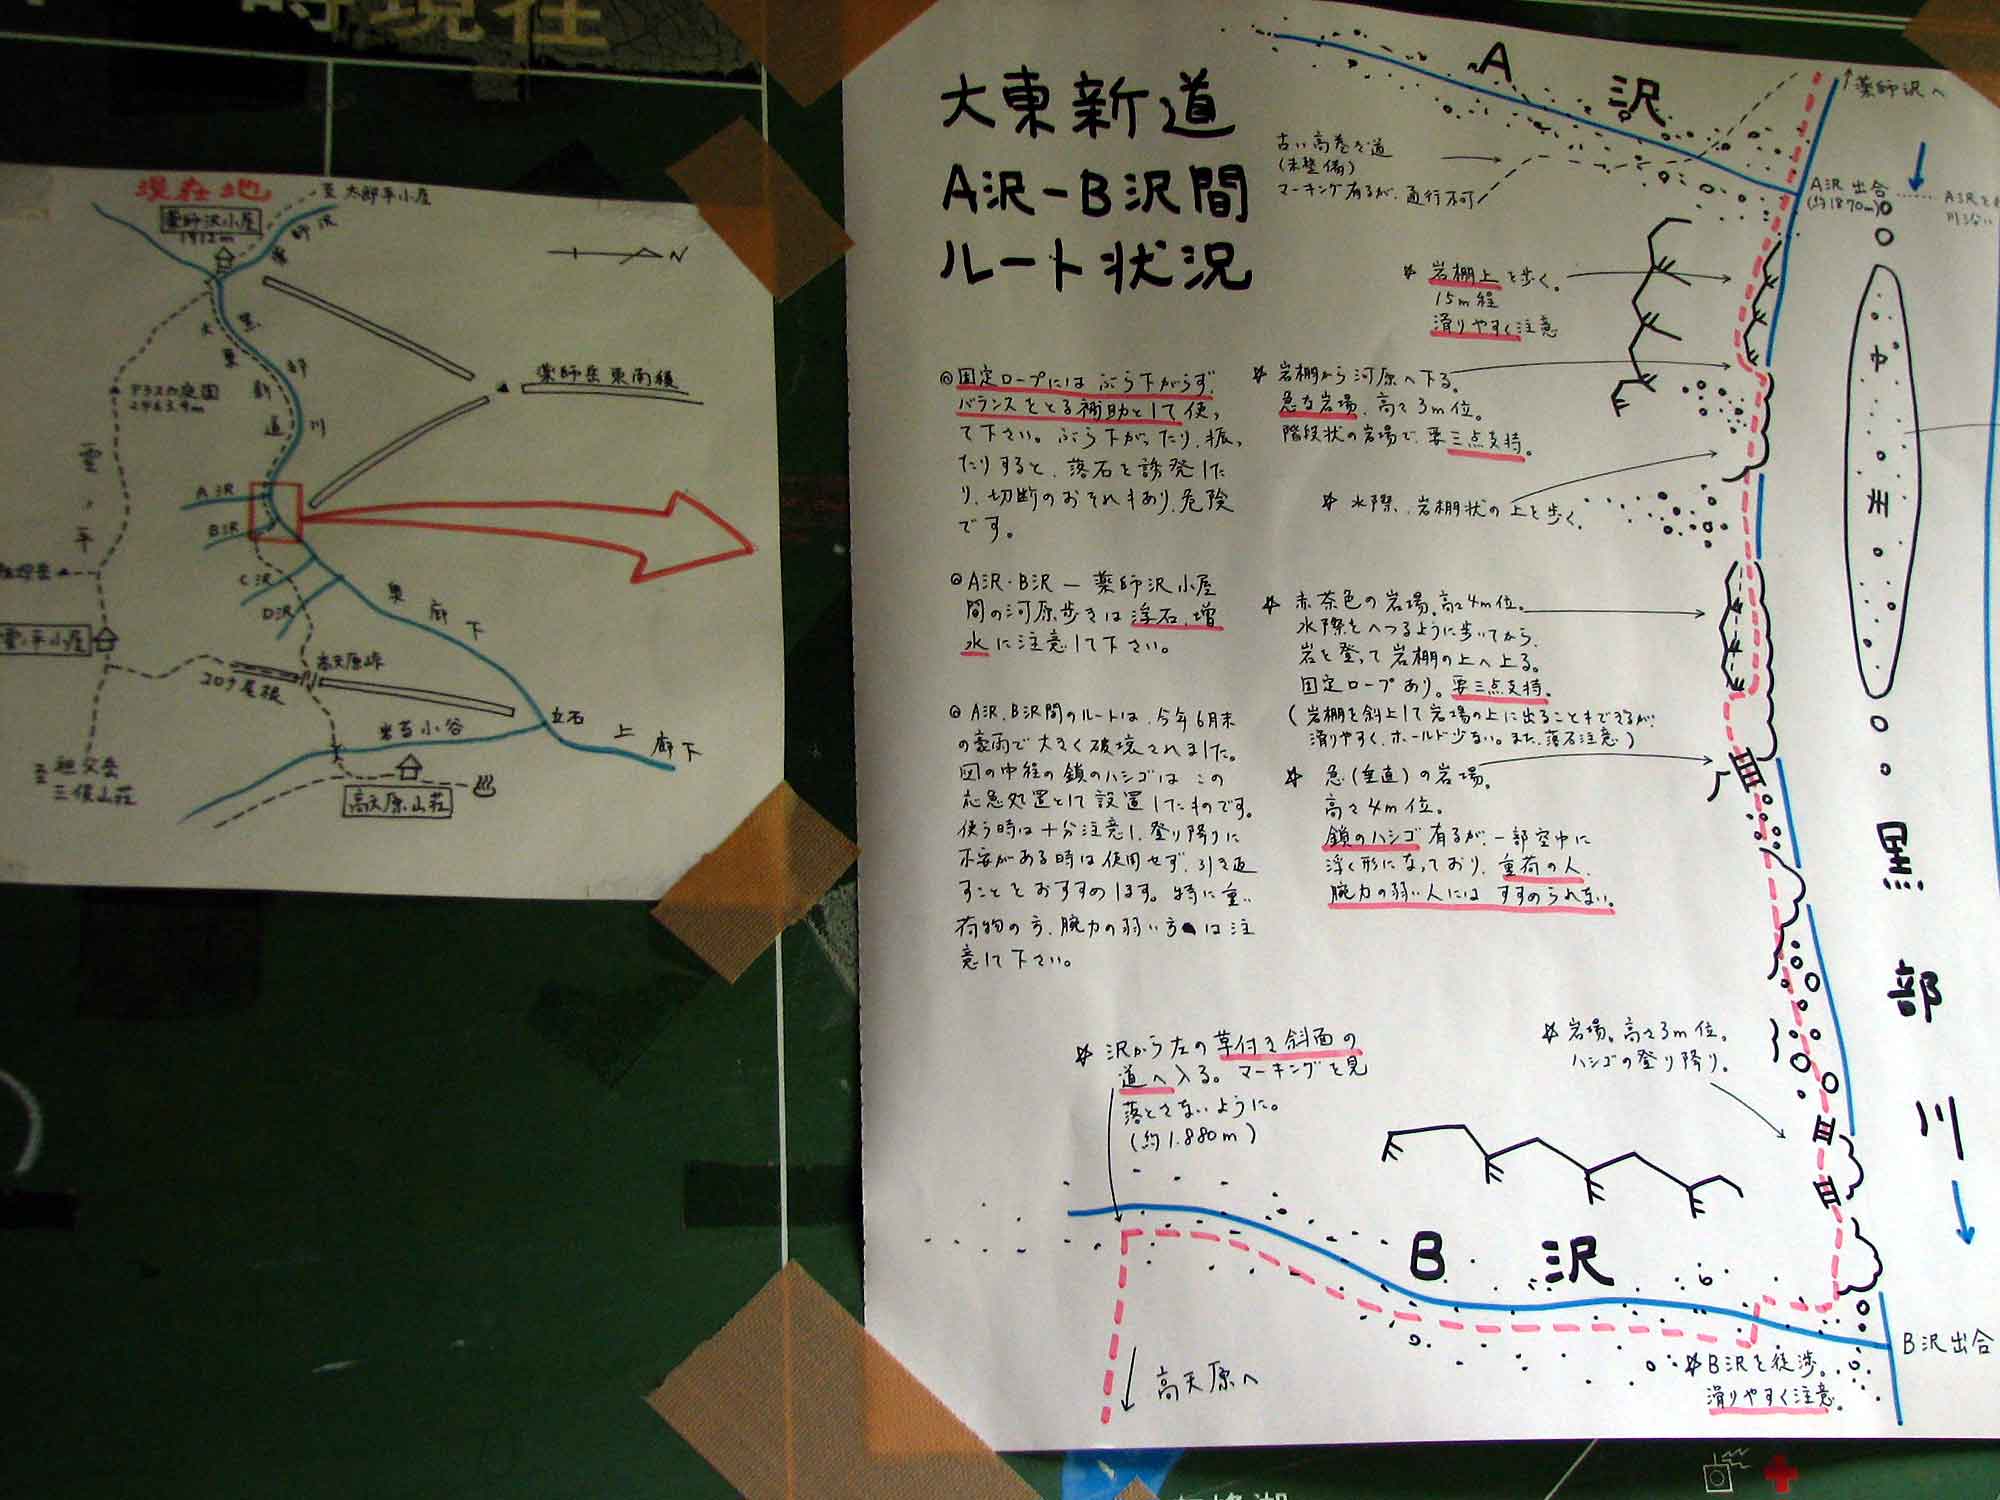 時現在
現在地
薬師沢小屋
1912m
至太郎平小屋
薬師沢
N
黒部川
大東新道
薬師岳東南稜
アラスカ庭園
2463.9m
雲ノ平
A沢
B沢
C沢
D沢
奥廊下
雲ノ平小屋
高天原峠
コロナ尾根
岩苔小谷
立石
上廊下
至祖父岳
三俣山荘
高天原山荘
大東新道
A沢-B沢間
ルート状況
A沢
古い高巻き道
(未整備)
マーキング有るが、通行不可
↑薬師沢へ
A沢出合
(約1870m)
A沢を
☆岩棚上を歩く。
15m程
滑りやすく注意
◎固定ロープにはぶら下がらず、
バランスをとる補助として使っ
て下さい。ぶら下がったり、振っ
たりすると、落石を誘発した
り、切断のおそれもあり、危険
です。
☆岩棚から河原へ下る。
急な岩場、高さ3m位。
階段状の岩場で、要三点支持。
☆水際、岩棚状の上を歩く。
中州
◎A沢・B沢ー薬師沢小屋
間の河原歩きは浮石、増
水に注意して下さい。
☆赤茶色の岩場。高さ4m位。
水際をへつるように歩いてから、
岩を登って岩棚の上へ上る。
固定ロープあり。要三点支持。
(岩棚を斜上して岩場の上に出ることもできるが、
滑りやすく、ホールド少ない。また、落石注意)
◎A沢、B沢間のルートは、今年6月末
の豪雨で大きく破壊されました。
図の中程の鎖のハシゴはこの
応急処置として設置したものです。
使う時は十分注意し、登り降りに
不安がある時は使用せず、引き返
すことをおすすめします。特に重い
荷物の方、腕力の弱い方は注
意して下さい。
☆急(垂直)の岩場。
高さ4m位。
鎖のハシゴ有るが、一部空中に
浮く形になっており、重荷の人、
腕力の弱い人にはすすめられない。
黒部川
☆沢から左の草付き斜面の
道へ入る。マーキングを見
落とさないように。
(約1.880m)
☆岩場。高さ3m位。
ハシゴの登り降り。
B沢
B沢出合
☆B沢を徒渉。
滑りやすく注意。
高天原へ